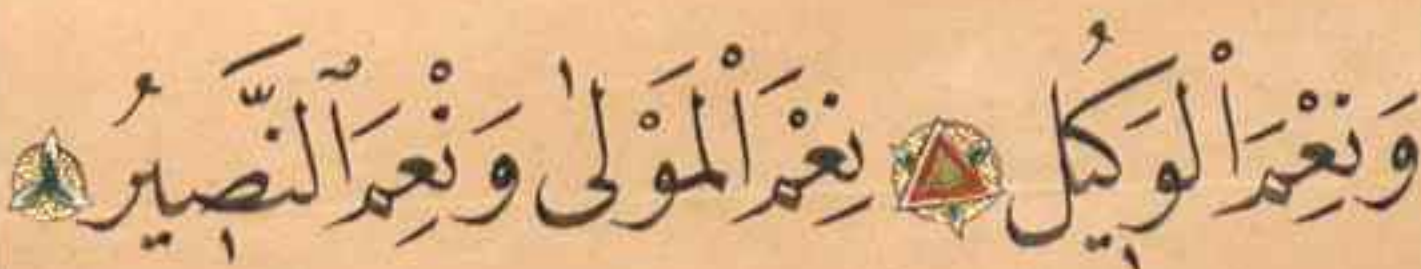 وَنِعْمَ الْوَكِيلُ نِعْمَ الْمَوْلٰى وَنِعْمَ ٱلنَّصِيرُ